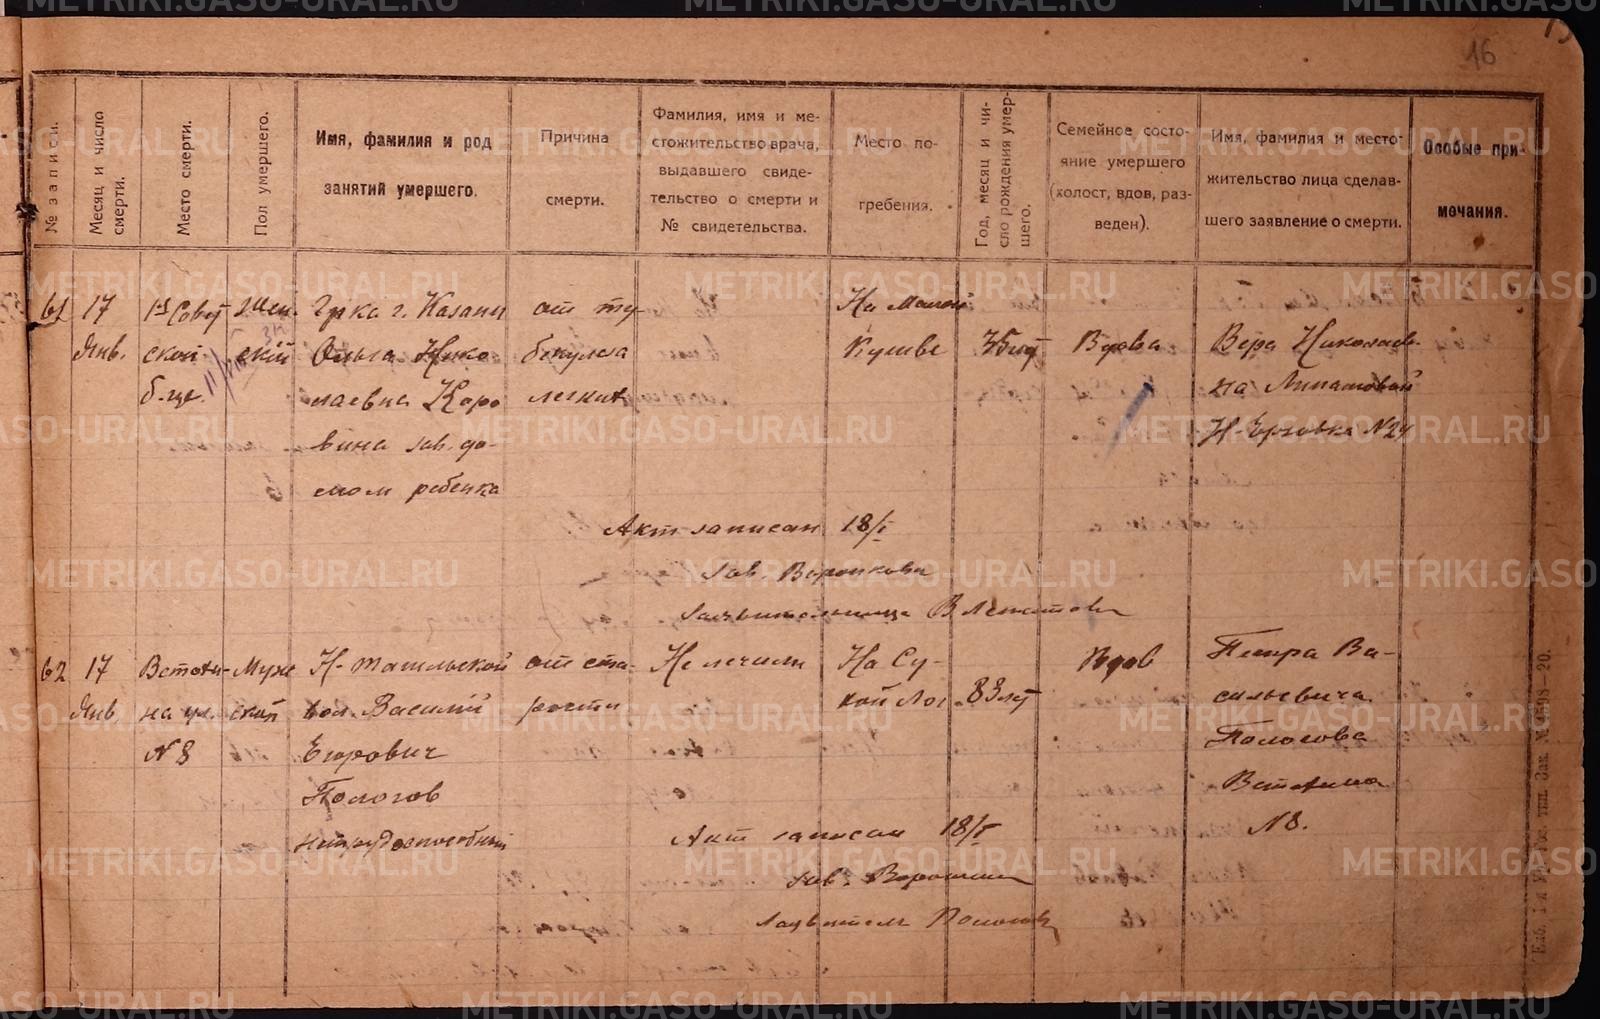 16
№ записи.
Месяц и число смерти.
Место смерти.
Пол умершего.
Имя, фамилия и род
занятий умершего.
Причина
смерти.
Фамилия, имя и ме-
стожительство врача,
выдавшего свиде-
тельство о смерти и
№ свидетельства.
Место по-
гребения.
Год, месяц и чи-
сло рождения умер-
шего.
Семейное состо-
яние умершего
(холост, вдов, раз-
веден).
Имя, фамилия и место-
жительство лица сделав-
шего заявление о смерти.
Особые при-
мечания.
61
17
Янв.
1й Совет
ской
б-це.
Жен-
ский
Гр-ка г. Казани
Ольга Нико
лаевна Каро
вина зав. до-
мом ребенка
от ту-
беркулеза
легких
На Малой
Кушве
Вдова
Вера Николаев
на Липатовой
№24
Акт записан 18/I
Зав. Воронкова
Заявительница В Липатова
62
17
Янв.
на ул.
№ 8
Муж
ской
Н-Тагильской
вол. Василий
Егорович
Пологов
нетрудоспособный
от ста-
рости
Не лечили
На Су-
хой Лог
83 лет
Вдов
Петра Ва-
сильевича
Пологова
№ 8.
Акт записан 18/I
Зав.
Заявитель Пологов
METRIKI.GASO-URAL.RU